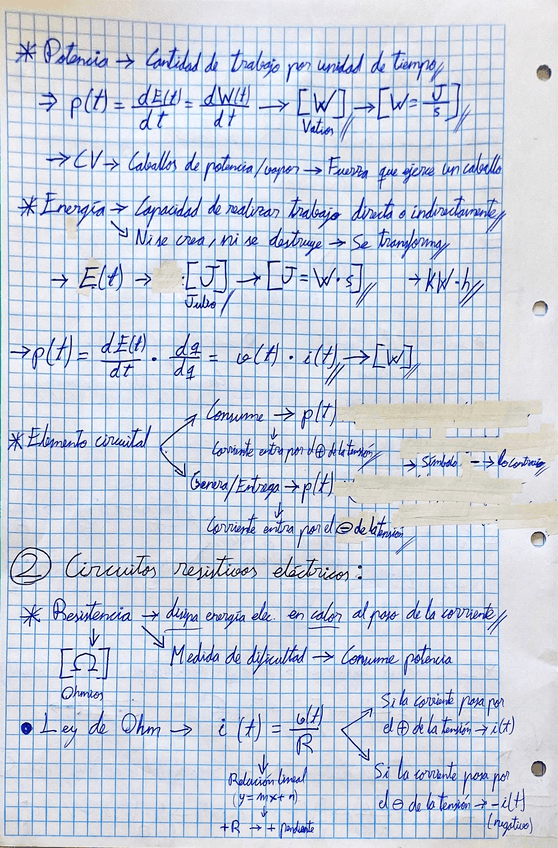 * Potencia → Cantidad de trabajo por unidad de tiempo //
⇒ p(t) = dE(t)/dt = dW(t)/dt → [W] → [W = J/s] //
Vatios //
→ CV → Caballos de potencia/vapor → Fuerza que ejerce un caballo
* Energía → Capacidad de realizar trabajo directa o indirectamente //
↘ Ni se crea, ni se destruye → Se transforma //
→ E(t) → : [J] → [J = W·s] // → KW·h //
Julio /
→ p(t) = dE(t)/dt · dq/dq = v(t) · i(t) // → [W] //
Consume → p(t)
* Elemento circuital
Corriente entra por el ⊕ de la tensión //
→ Símbolo - → lo contrario //
Genera/Entrega → p(t)
Corriente entra por el ⊖ de la tensión //
② Circuitos resistivos eléctricos:
* Resistencia → disipa energía elec. en calor al paso de la corriente //
[Ω] ↘ Medida de dificultad → Consume potencia
Ohmios
• Ley de Ohm → i(t) = v(t)/R
Si la corriente pasa por
el ⊕ de la tensión → i(t)
Si la corriente pasa por
el ⊖ de la tensión → -i(t)
(negativo)
Relación lineal
(y = mx + n)
+R → + pendiente